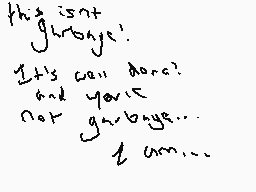 this isnt
garbage!
It's well done!
and you're
not garbage...
I am...